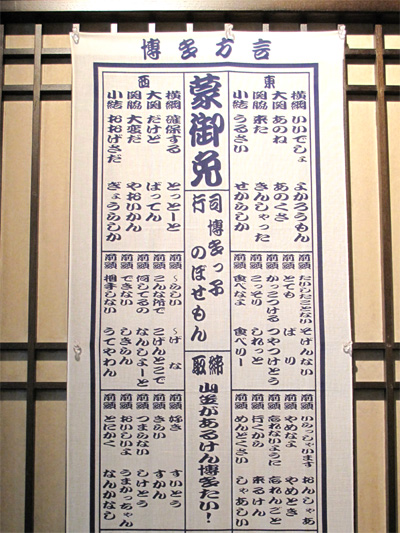 博多方言
東
横綱 いいでしょ よかろうもん
大関 あのね あのくさ
関脇 来た きんしゃった
小結 うるさい せからしか
前頭 たいしたことない そげんない
前頭 とても ばり
前頭 かっこつける つやつけとう
前頭 こっそり しれっと
前頭 食べなよ 食べりー
前頭 いらっしゃいます おんしゃあ
前頭 やめなよ やめとき
前頭 忘れないように 忘れんごと
前頭 行くから 来るけん
前頭 めんどくさい しゃあしい
蒙御免
行司 博多っ子 のぼせもん
取締 山笠があるけん博多たい!
西
横綱 確保する とっとーと
大関 だけど ばってん
関脇 大変だ やおいかん
小結 おおげさだ ぎょうらしか
前頭 〜らしい 〜げな
前頭 こんな所で こげんとこで
前頭 何してるの なんしよーと
前頭 できない しきらん
前頭 相手しない うてやわん
前頭 好き すいとう
前頭 きらい すかん
前頭 つまらない しけとう
前頭 おいしいよ うまかっちゃん
前頭 とにかく なんかなし